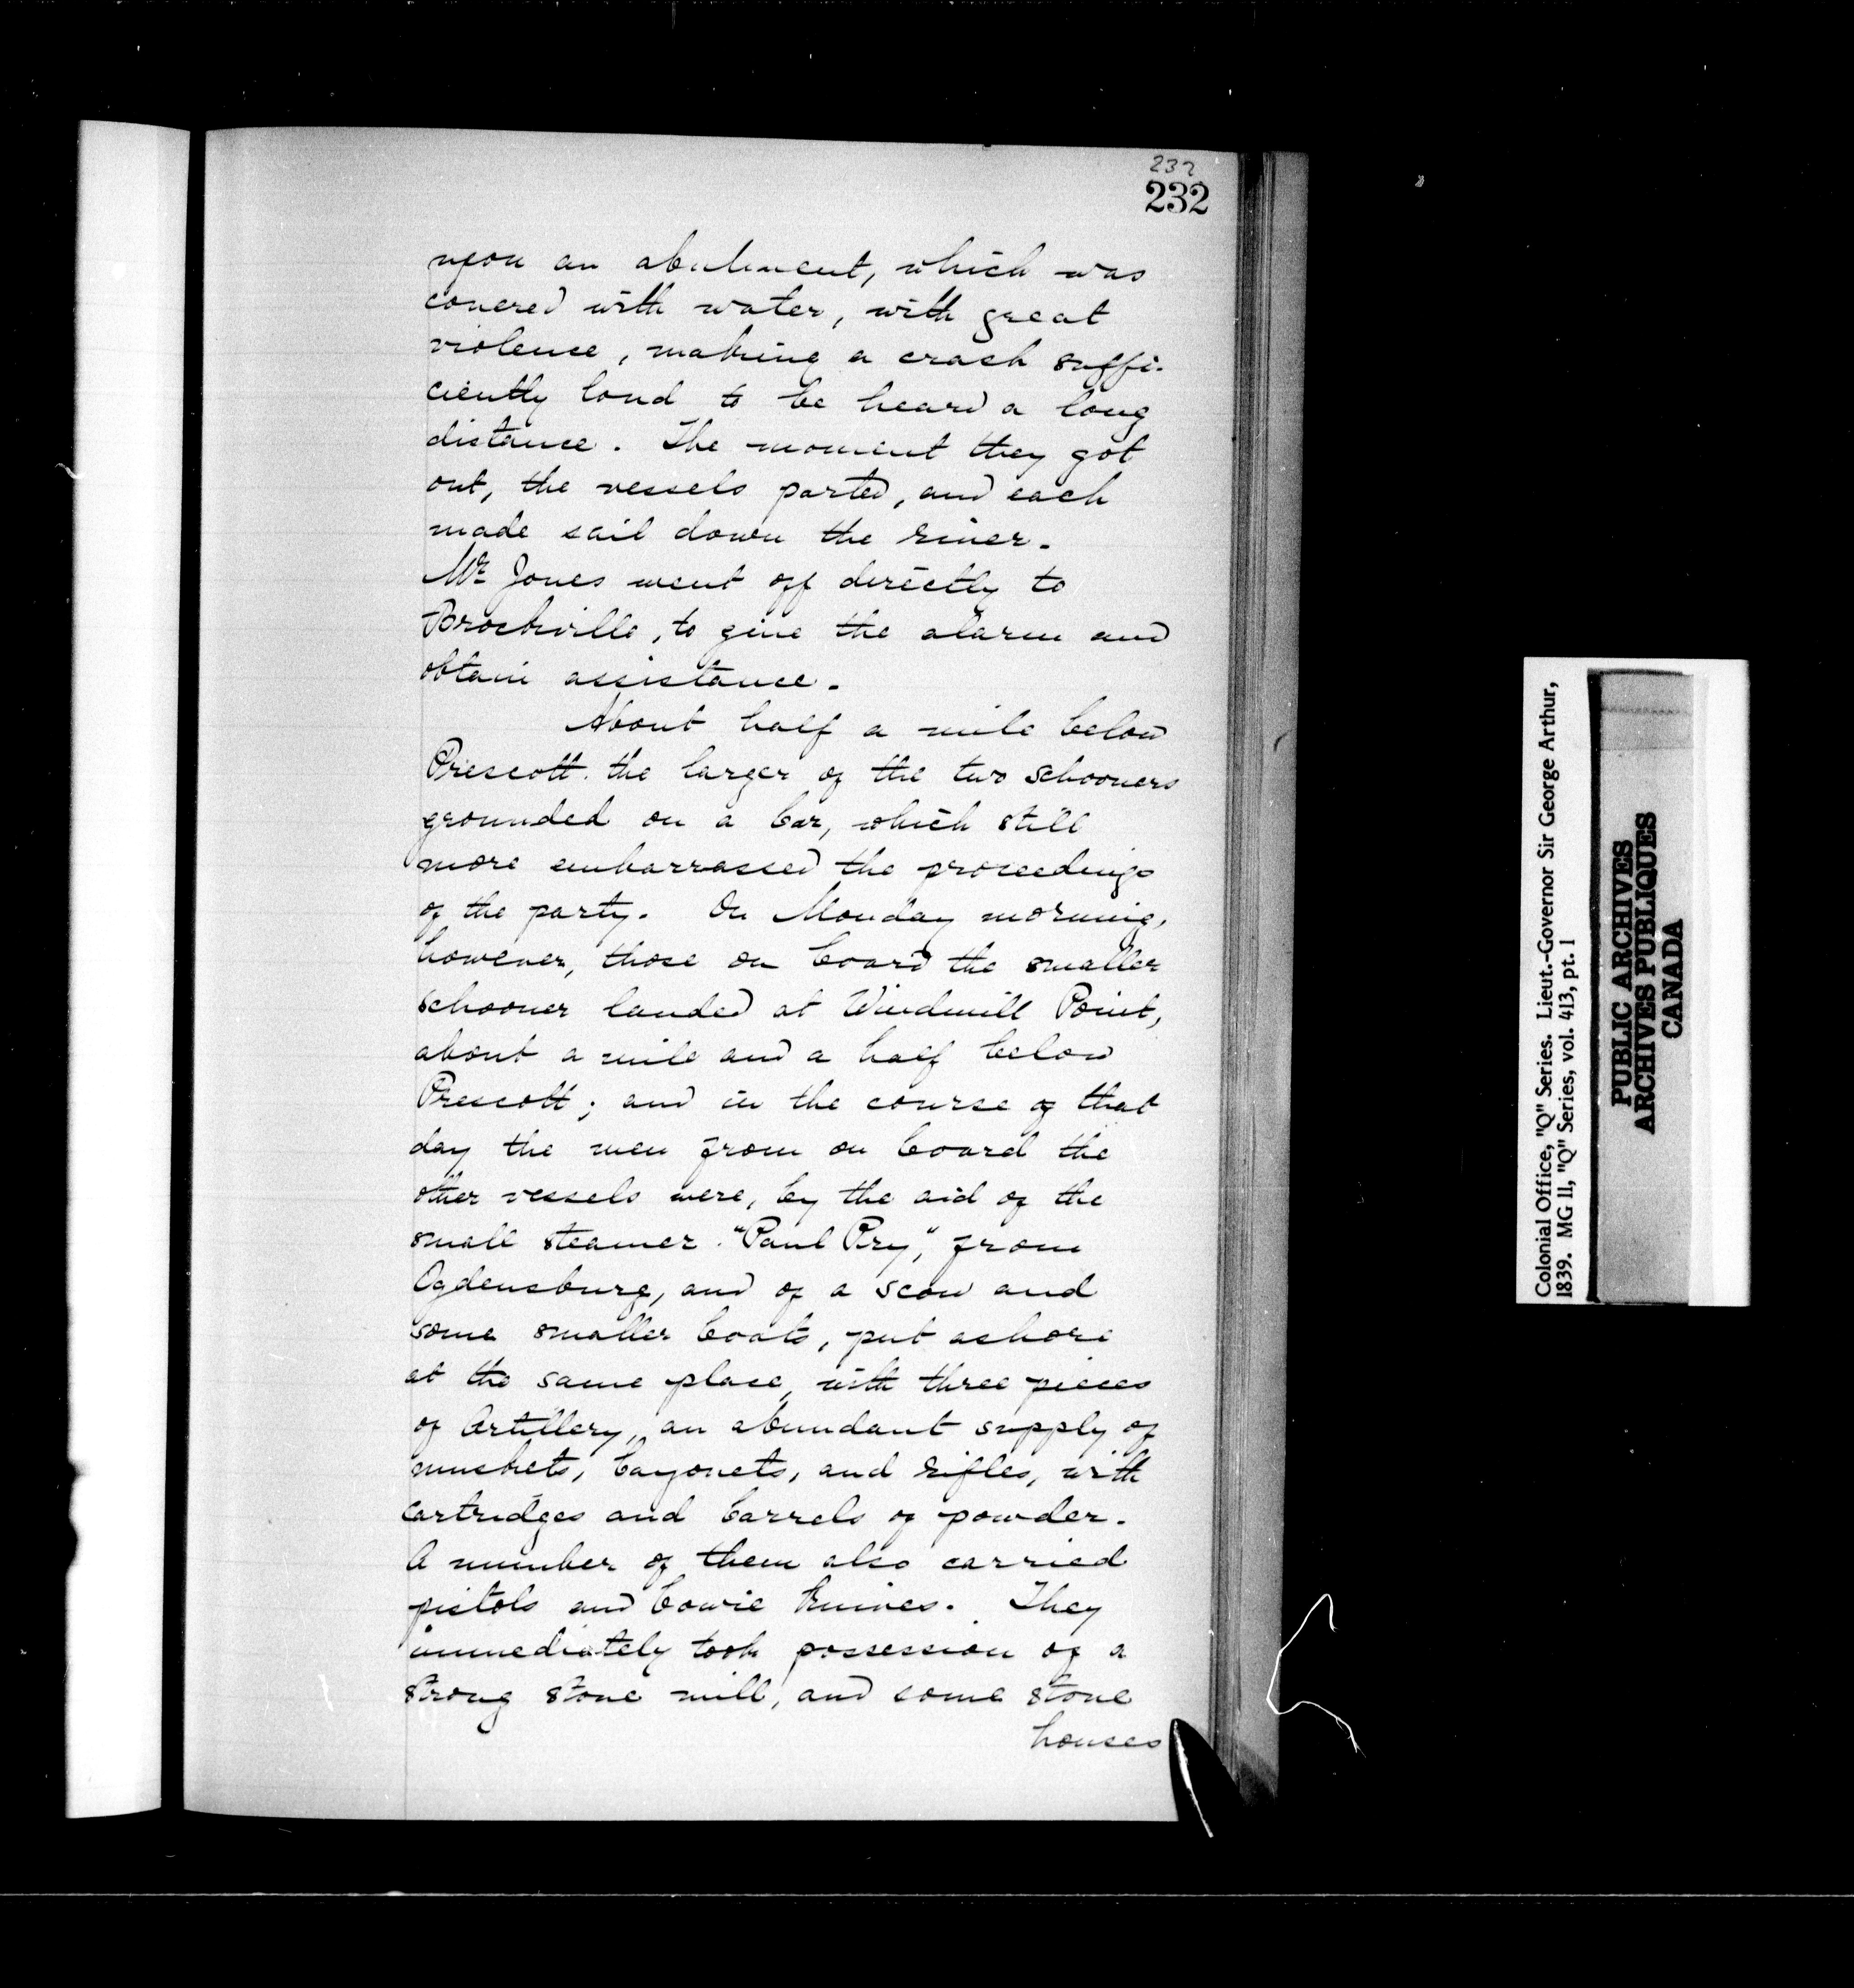 232
232
upon an abutment, which was
covered with water, with great
violence, making a crash suffi-
ciently loud to be heard a long
distance. The moment they got
out, the vessels parted, and each
made sail down the river.
Mr Jones went off directly to
Brockville, to give the alarm and
obtain assistance.
About half a mile below
Prescott the larger of the two schooners
grounded on a bar, which still
more embarrassed the proceedings
of the party. On Monday morning,
however, those on board the smaller
schooner landed at Windmill Point,
about a mile and a half below
Prescott; and in the course of that
day the men from on board the
other vessels were, by the aid of the
small steamer "Paul Pry," from
Ogdensburg, and of a scow and
some smaller boats, put ashore
at the same place, with three pieces
of Artillery, an abundant supply of
muskets, bayonets, and rifles, with
cartridges and barrels of powder.
A number of them also carried
pistols and bowie knives. They
immediately took possession of a
strong stone mill, and some stone
houses
Colonial Office, "Q" Series. Lieut.-Governor Sir George Arthur,
1839. MG 11, "Q" Series, vol. 413, pt. 1
PUBLIC ARCHIVES
ARCHIVES PUBLIQUES
CANADA